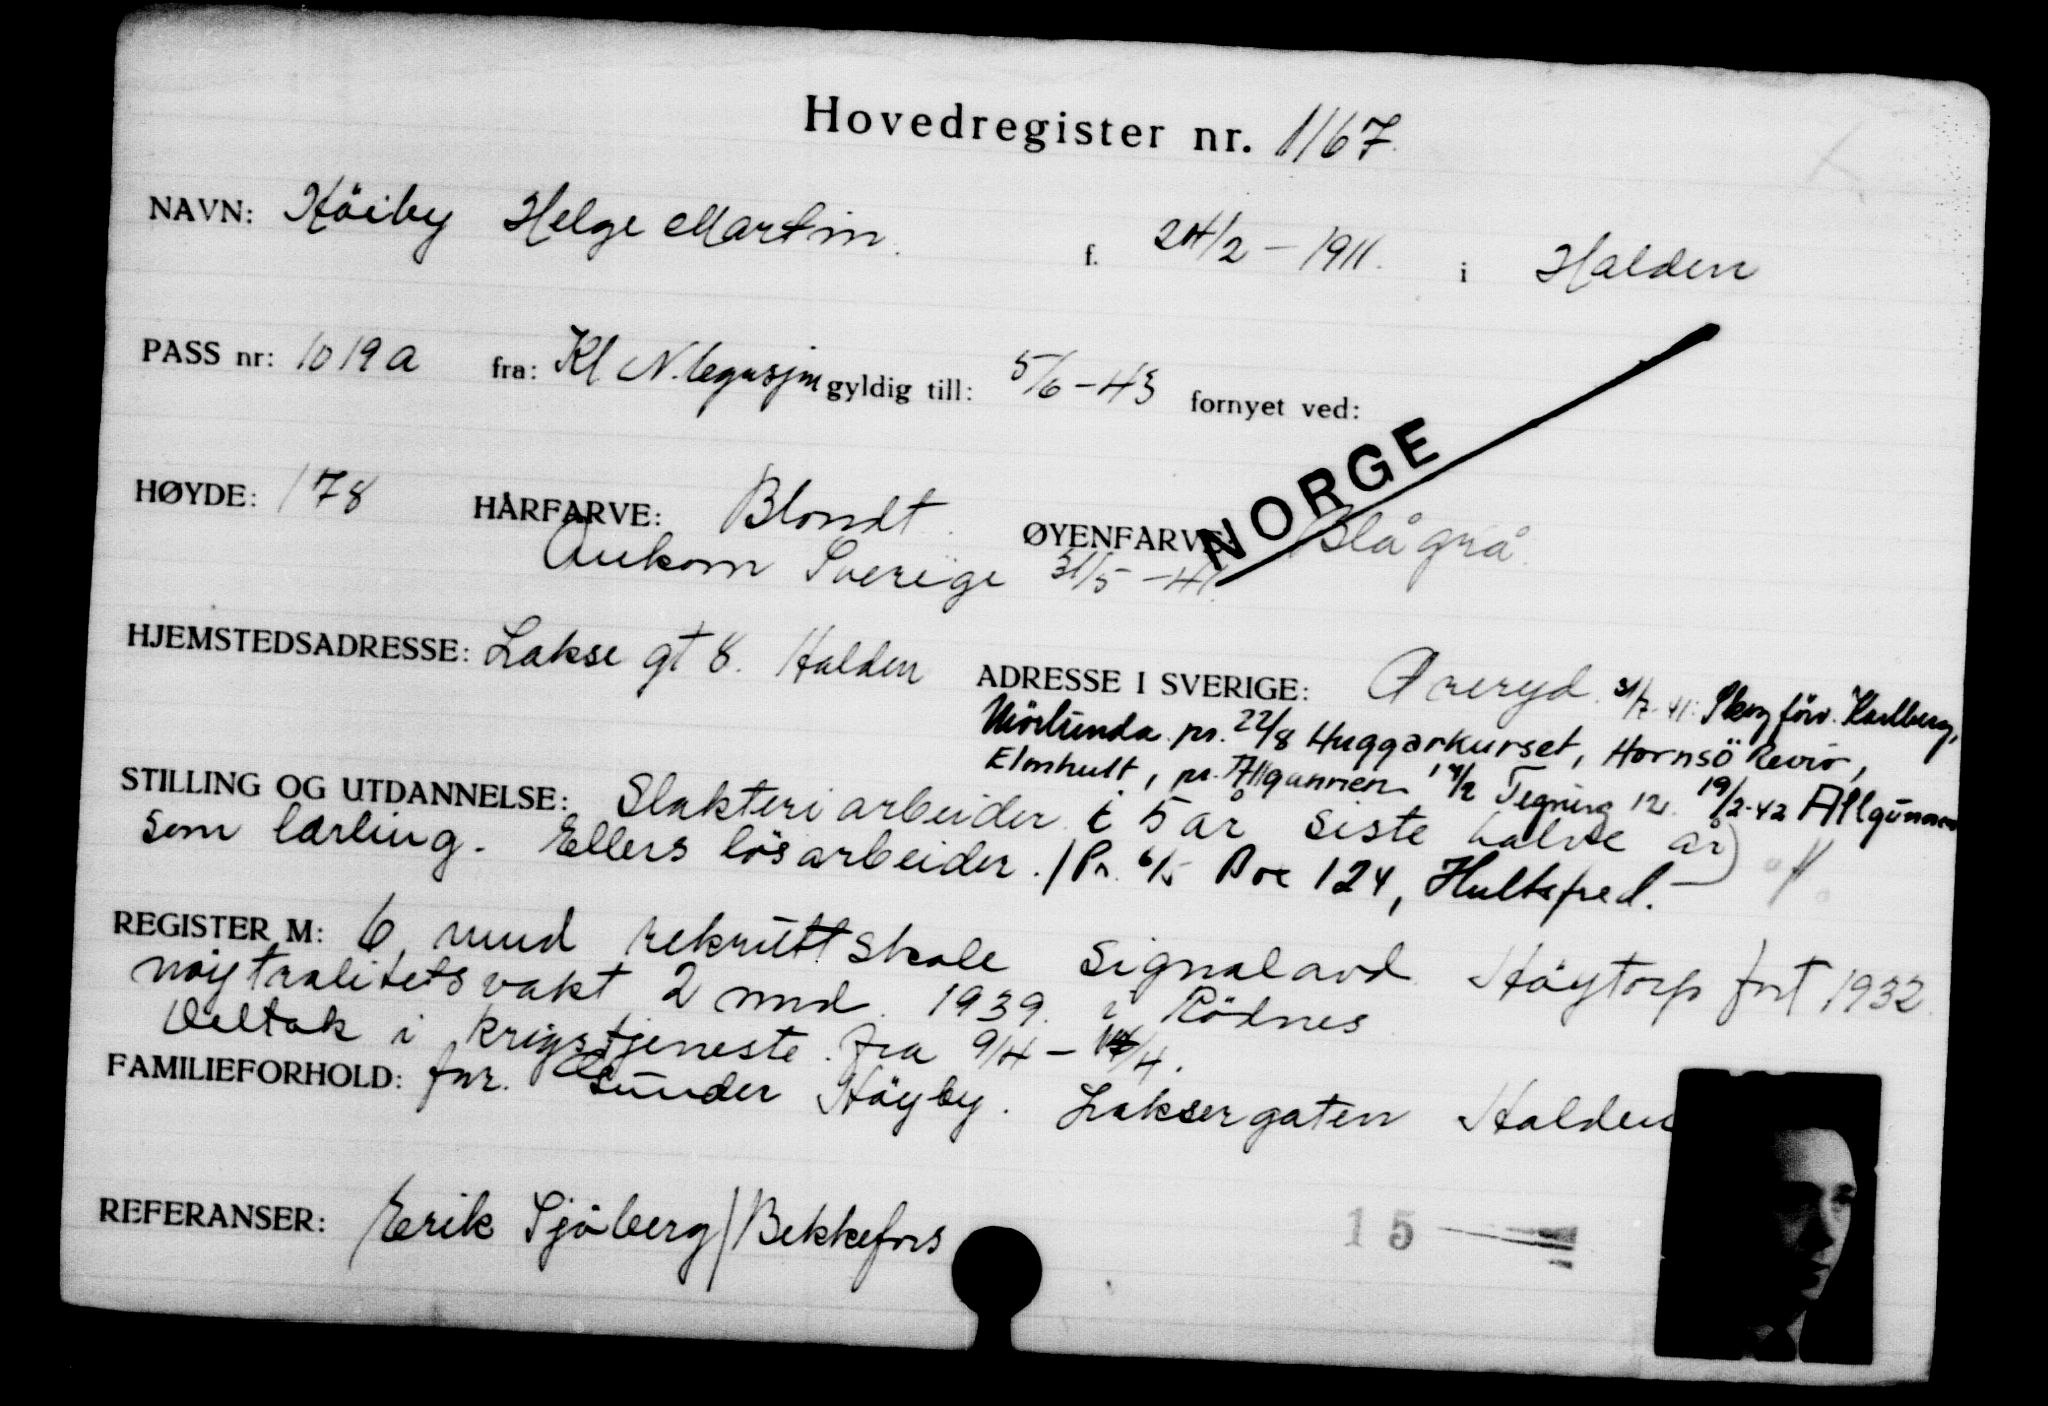 Hovedregister nr. 1167.
NAVN: Höiby Helge Martin. f. 24/2 - 1911. i Halden
PASS nr: 1019a fra: Kl N. legasjon gyldig till: 5/6 - 43 fornyet ved:
NORGE
HØYDE: 178 HÅRFARVE: Blondt. ØYENFARVE: Blå grå.
Ankom Sverige 31/5 - 41.
HJEMSTEDSADRESSE: Lakse gt 8. Halden ADRESSE I SVERIGE: Öreryd. 31/7-41: Skogförv. Karlberg,
Mörlunda. pr. 22/8 Huggarkurset, Hornsö Revir,
Elmhult, pr. Allgunnen 14/2 Tegning 12. 19/2-42 Allgunnen
STILLING OG UTDANNELSE: Slakteri arbeider i 5 år siste halve år)
som lærling. Ellers lösarbeider. / Pr. 6/5 Box 124, Hultsfred.
REGISTER M: 6 mnd rekruttskole signalavd. Höytorp fort 1932.
nöytralitetsvakt 2 mnd. 1939. i Rödnes.
Deltok i krigstjeneste. fra 9/4 - 14/4.
FAMILIEFORHOLD: far. Gunder Höyby. Laksergaten Halden
REFERANSER: Erik Sjöberg / Bekkefors
15